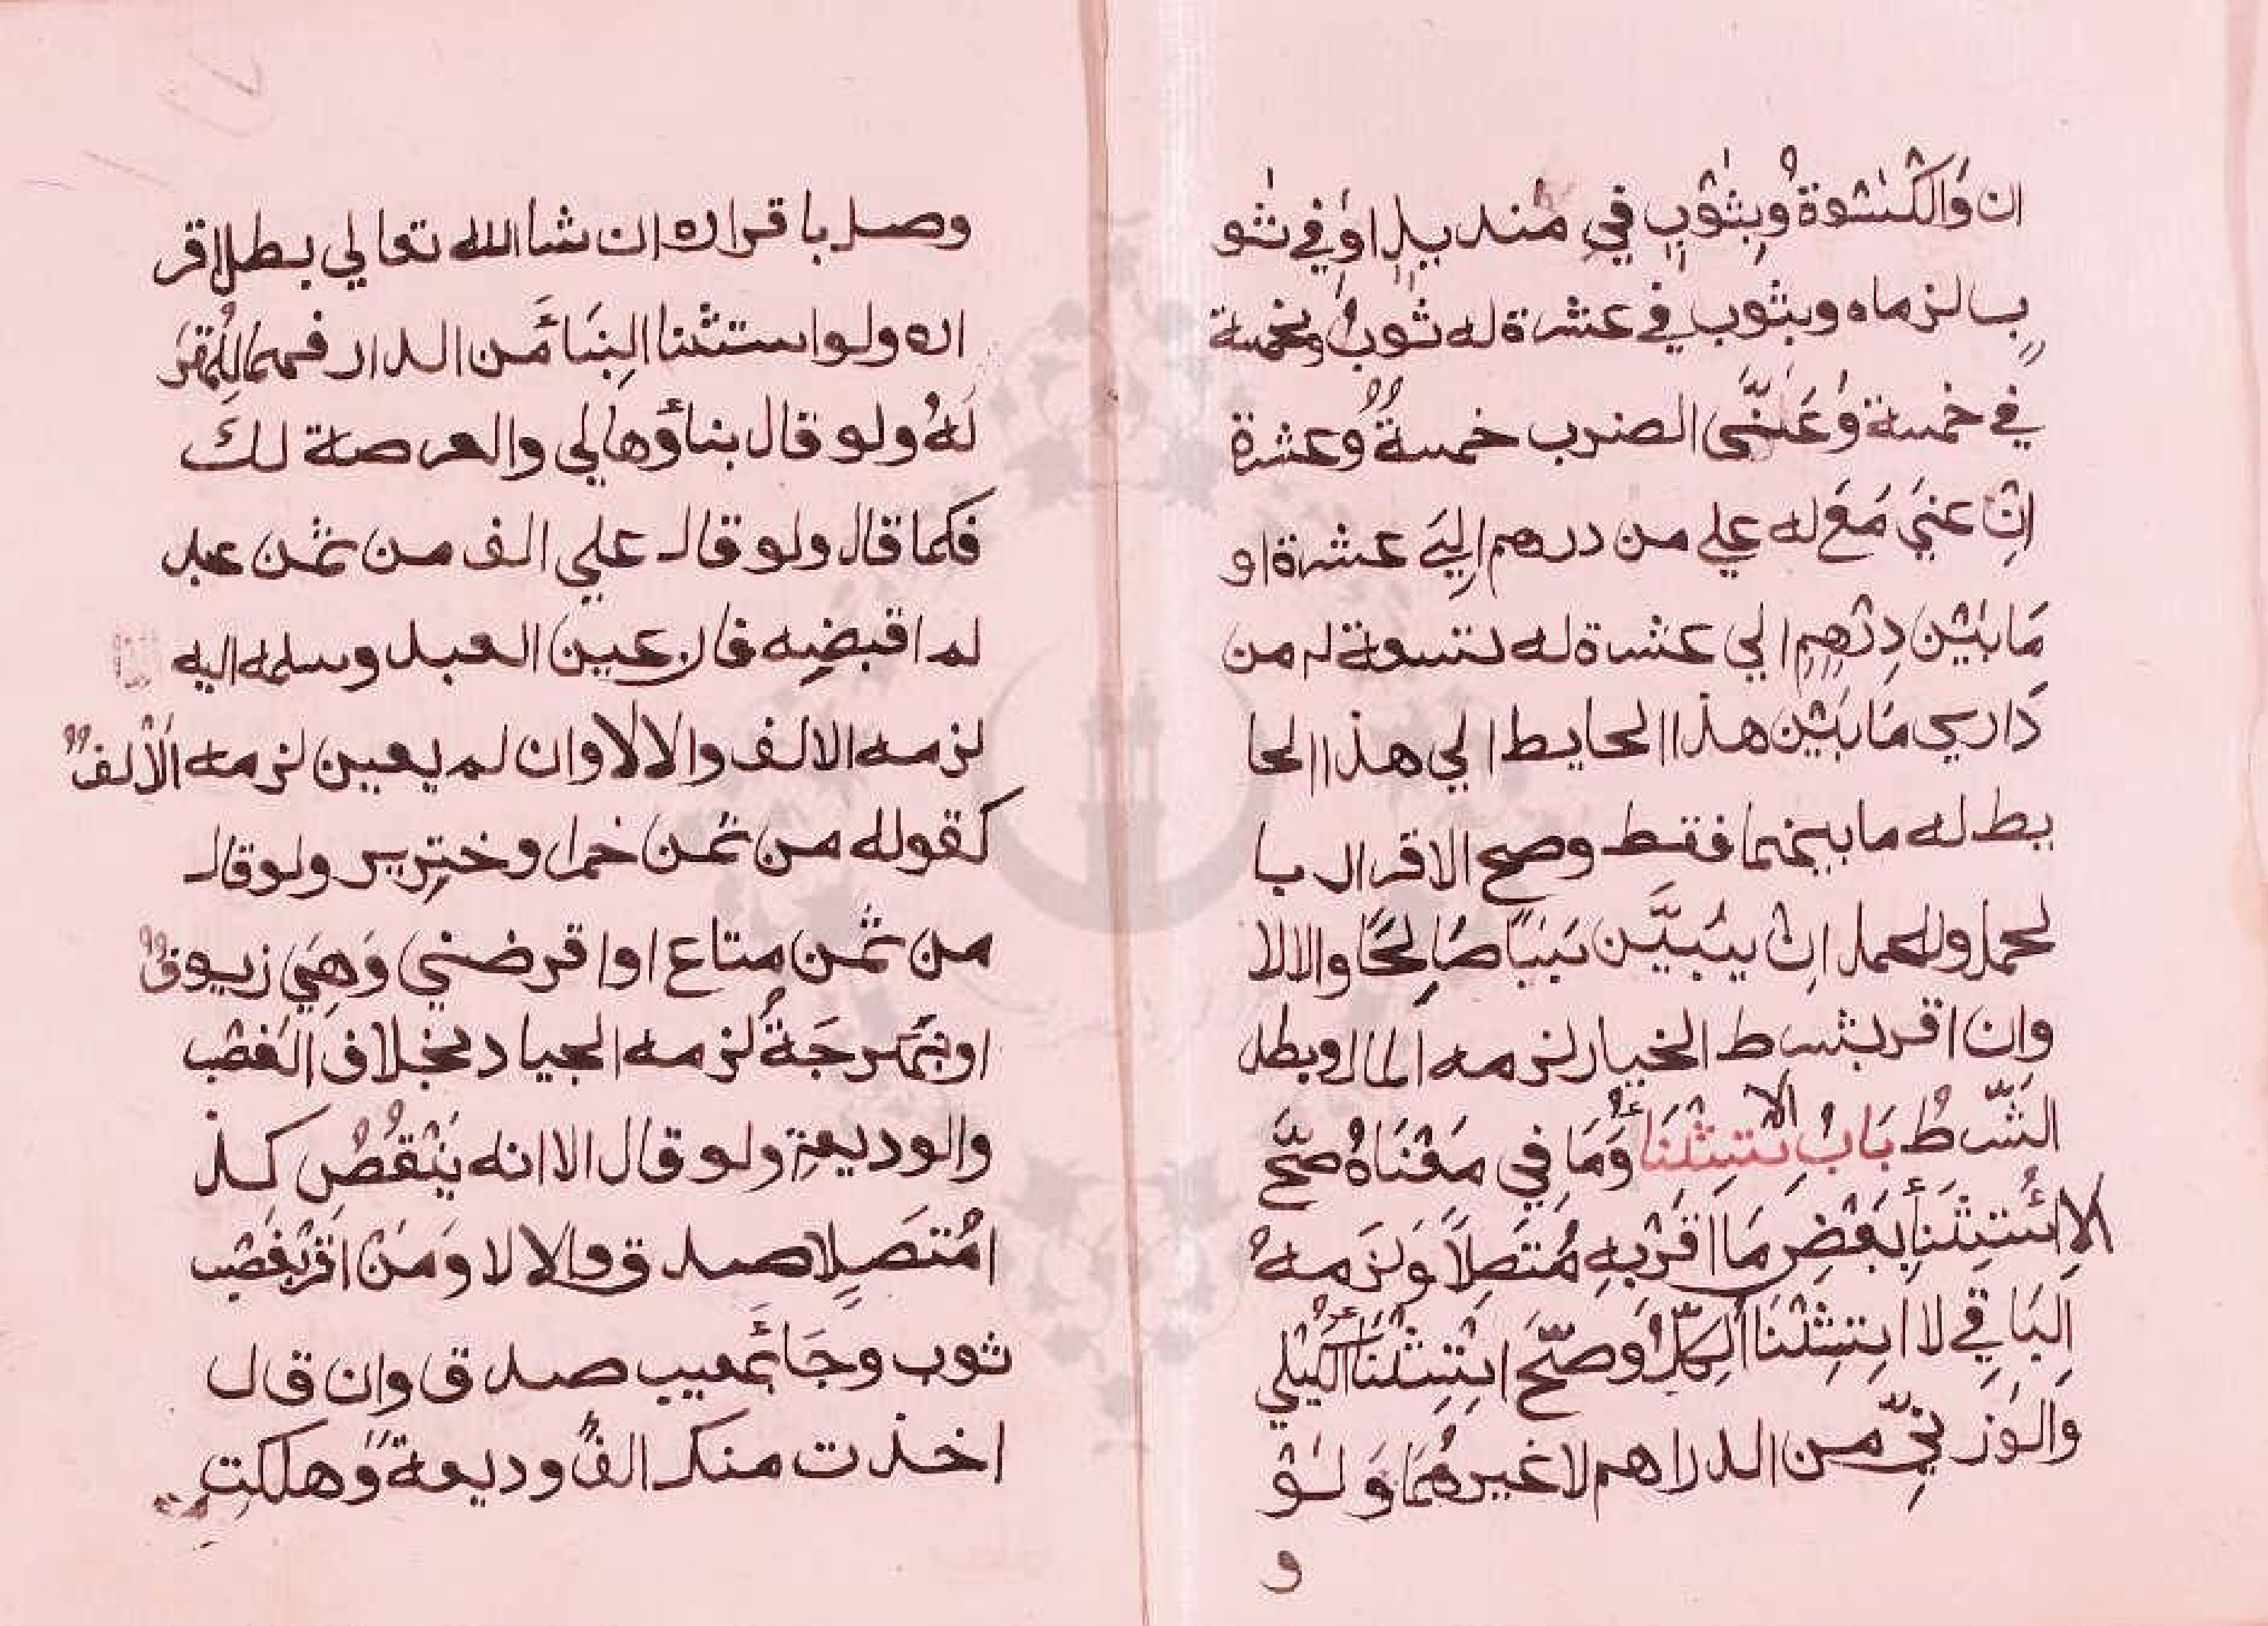 ان وَالْكْسْوَةُ وَبِثَوْبٍ فِي مَنديلٍ اَوْ في ثَو
بٍ لزماه وبثوب في عشرة له ثوبٌ وبخمسة
في خمسة وَعَنَى الضرب خمسةٌ وعشرة
اِنْ عَنَى مَعَ له علي من درهم اِليَ عشرة او
مَا بَيْنَ دِرْهِمٍ الي عشرة له تسعة له من
دَاري مَا بَيْنَ هذا الحايط الي هذا الحا
يط له ما بينهما فقط وصح الاقرار با
لحمل وللحمل اِنْ يبُيَّن سَبَبًا صَالِحًا والا لا
وان اقر بشرط الخيار لزمه المال وبطل
الشّرطُ بَابُ الاستِثْنَاءُ وَمَا فِي مَعْنَاهُ صَحَّ
الاِسْتِثْنَأُ بَعْضِ مَا اَقَرَّ بِهِ مُتَّصِلاً وَلَزِمَهُ
اَلْبَاقِي لا اِستِثْنَا الكُلِّ وَصَحَّ اِسْتِثْنَا الكَيْلي
وَالوَزْنِيّ من الدراهم لا غيرهُمَا وَلَوْ
و
وصل باقراره ان شا الله تعالي بطل اقر
اره ولو استثنا البِنَاءَ من الدار فهما للمُقَرِ
لَهُ ولو قال بناؤُها لي والعرصة لكَ
فكما قال ولو قال علي الف من ثمن عبد
لم اقبضِه فان عين العبد وسلمه اليه
لزمه الالف والا لا وان لم يعين لزمه الْاَلفُ
كقوله من ثمن خمر او خنزير ولو قال
من ثمن متاع او اقرضني وَهِيَ زيوفٌ
او نَبَهْرَجَةٌ لزمه الجياد بخلاف الغَصْب
والوديعة ولو قال الا انه يَنْقُصُ كذ
ا مُتَّصِلاً صدق والا لا وَمَنْ اقَرَّ بغَصْب
ثوب وَجَاءَ بمعيب صدق وان قال
اخذت منك الفًا وديعةً وَهلكت